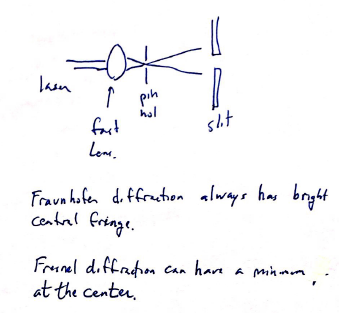 laser
fast
lens.
pin
hol
slit
Fraunhofer diffraction always has bright
central fringe.
Fresnel diffraction can have a minimum
at the center.